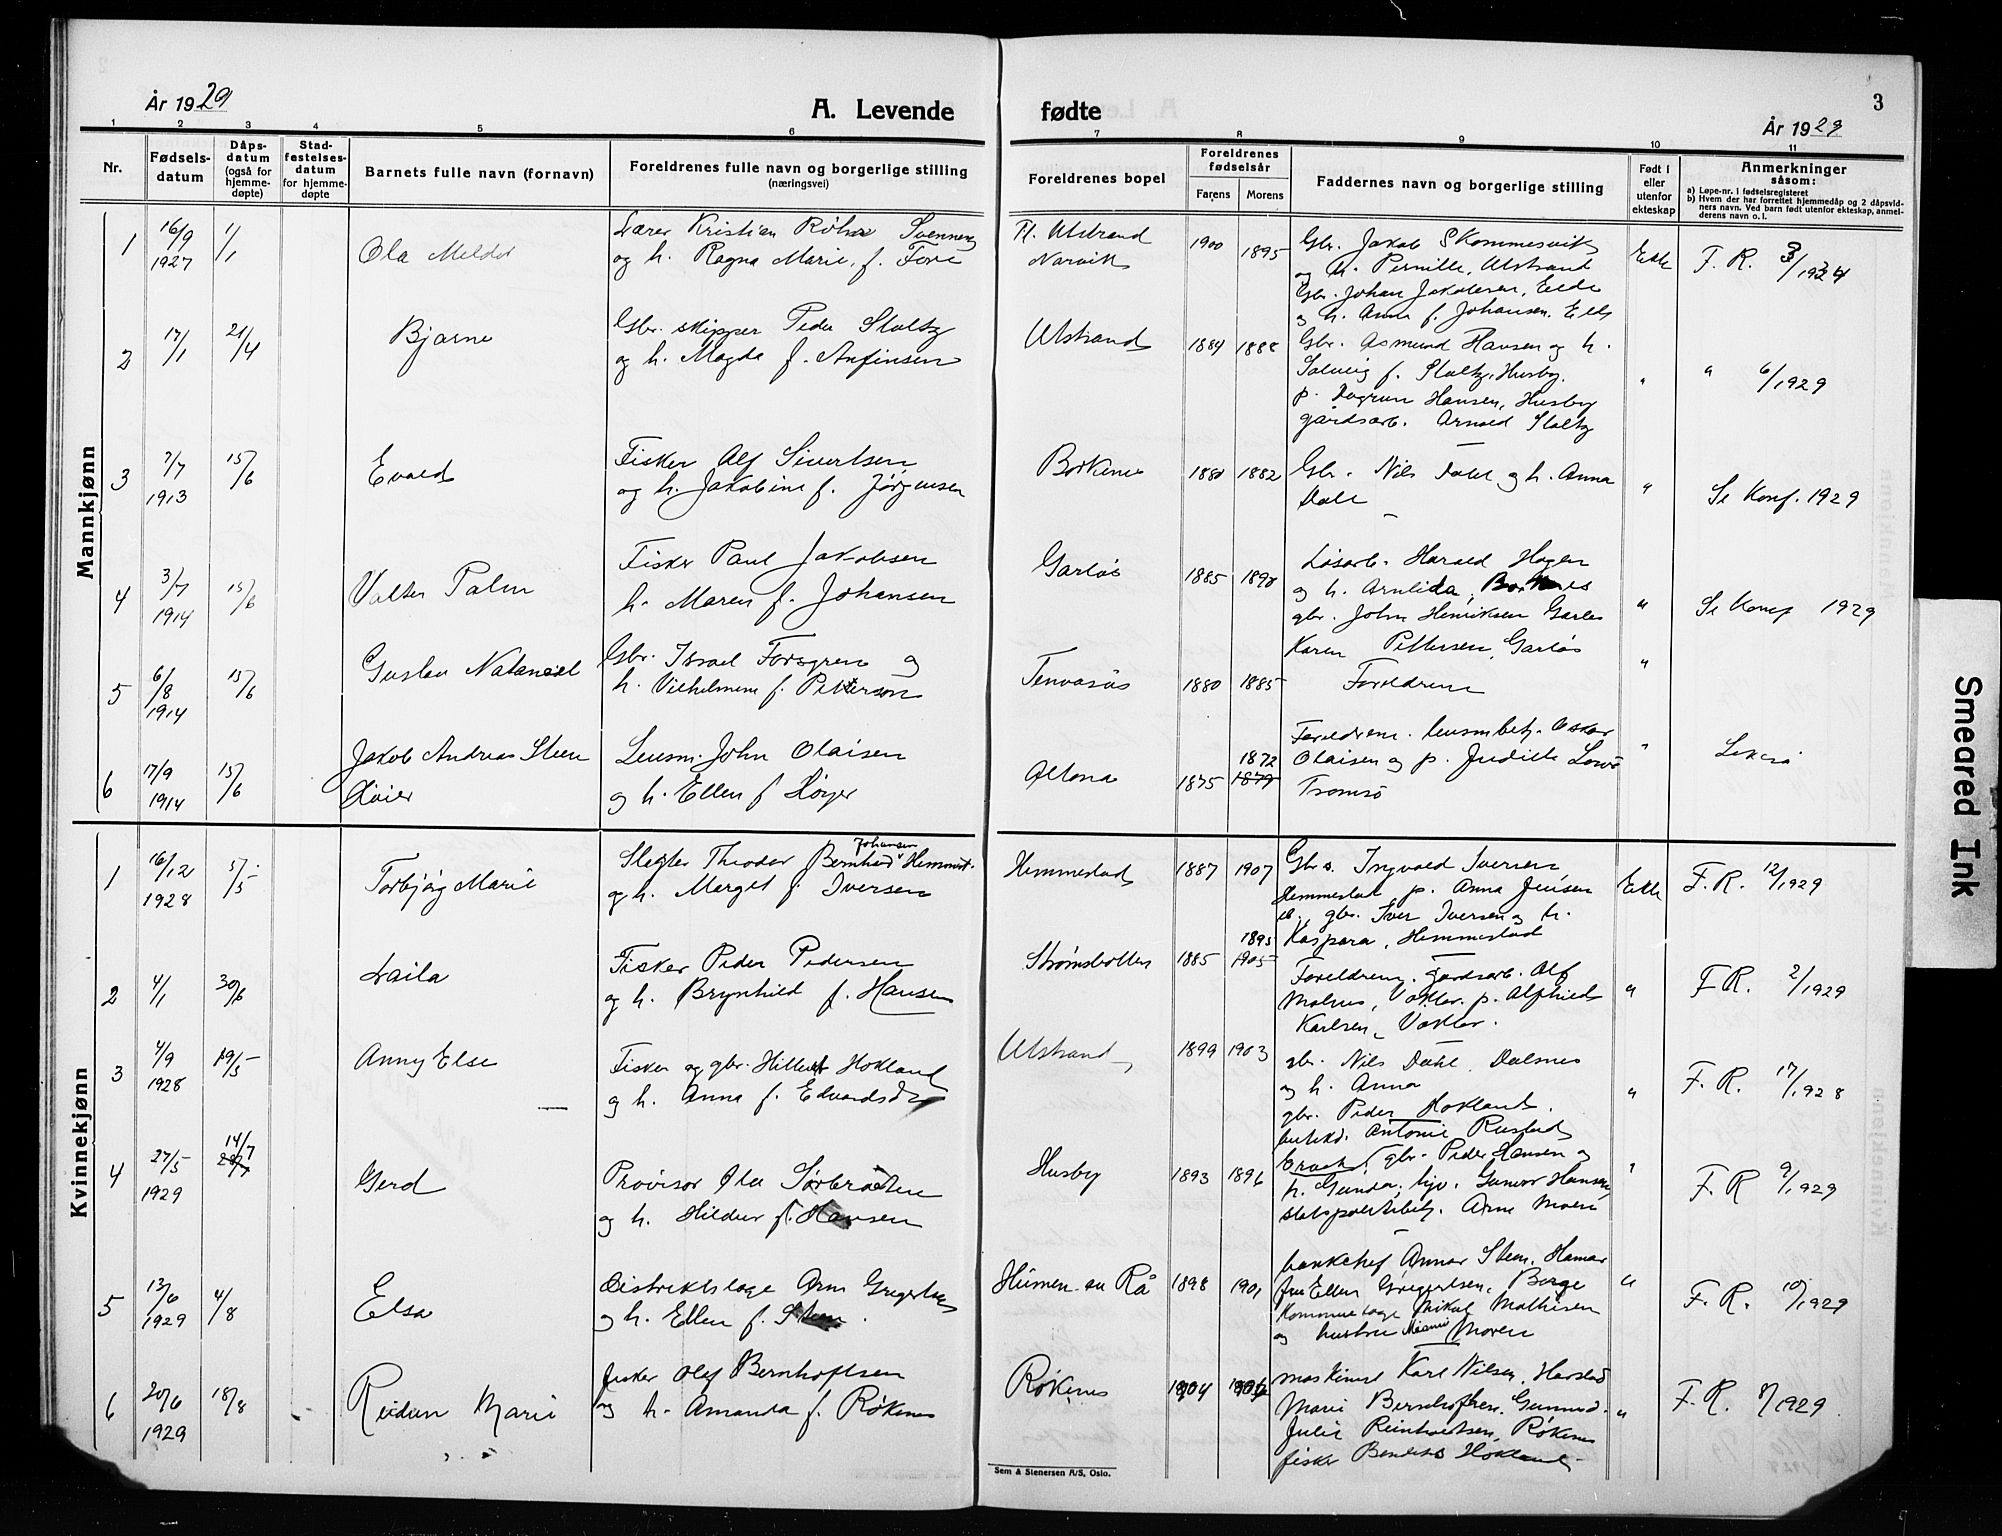 År 1929
A. Levende
fødte
3
År 1929
1 2 3 4 5 6 7 8 9 10 11
Nr.
Fødsels-
datum
Dåps-
datum
(også for
hjemme-
døpte)
Stad-
festelses-
datum
for hjemme-
døpte
Barnets fulle navn (fornavn)
Foreldrenes fulle navn og borgerlige stilling
(næringsvei)
Foreldrenes bopel
Foreldrenes
fødselsår
Farens Morens
Faddernes navn og borgerlige stilling
Født i
eller
utenfor
ekteskap
Anmerkninger
såsom:
a) Løpe-nr. i fødselsregisteret
b) Hvem der har forrettet hjemmedåp og 2 dåpsvid-
ners navn. Ved barn født utenfor ekteskap, anmel-
derens navn o. l.
Mannkjønn
1 16/9 1927 1/1
Ola
Lærer Kristian
og h. Ragna Marie, f. Fore
Narvik
1900 1895
Gbr. Jakob Skommesvik
og h. Pernille, Ulstrand
Gbr. Johan Jakobsen, Eide
og h. Anna f. Johansen. Eide
Ekte
F. R. 3/1934
2 17/1 21/4
Bjarne
Gbr. skipper Peder Stoltz
og h. Magda f. Anfinsen
Ulstrand
1884 1888
Gbr. Asmund Hansen og h.
Solveig f. Stoltz, Husby.
p. Dagrun Hansen, Husby
gårdsarb. Arnold Stoltz
"
" 6/1929
3 7/7 1913 15/6
Evald
Fisker Alf Sivertsen
og h. Jakobine f. Jørgensen
Borkenes
1880 1882
Gbr. Nils Dahl og h. Anna
Dahl
"
Se Konf. 1929
4 3/7 1914 15/6
Valter Palm
Fisker Paul Jakobsen
h. Maren f. Johansen
Garlös
1885 1890
Løsarb. Harald Hagen
og h. Arnlida, Borkenes
gbr. John Henriksen Garles
Karen Pettersen, Garløs
"
Se Konf 1929
5 6/8 1914 15/6
Gustav Natanael
Gbr. Israel Forsgren og
h. Vilhelmine f. Petterson
Tenvasås
1880 1885
Foreldrene
"
6 17/9 1914 15/6
Jakob Andreas Steen
Høier
Lensm. John Olaisen
og h. Ellen f Høyer
Altona
1875 1872 1879
Foreldrene. lensmbetj. Oskar
Olaisen og p. Judith
Tromsö
"
Kvinnekjønn
1 16/12 1928 5/5
Torbjörg Marie
Slegter Theodor Bernhard Johansen Hemmest.
og h. Merget f. Iversen
Hemmestad
1887 1907
Gbr. Ingvald Iversen
Hemmestad, p. Anna Jensen
ib., gbr. Iver Iversen og h.
Kaspara, Hemmestad
Ekte
F. R. 12/1929
2 4/1 30/6
Laila
Fisker Peder Pedersen
og h. Brynhild f. Hansen
Strømsbotten
1885 1895 1905
Foreldrene. Gårdsarb. Alf
Molnes, p. Alfhild
Karlsen,
"
F R. 2/1929
3 4/9 1928 19/5
Anny Else
Fisker og gbr. Hilbert Hokland
og h. Anna f.
Ulstrand
1899 1903
gbr. Nils Dahl, Dalsnes
og h. Anna
gbr. Peder Hokland.
butikd. Antonie Rustad
"
F. R. 17/1928
4 27/5 1929 14/7
Gerd
Provisor Ola Sørbrøden
og h. Hildur f. Hansen
Husby
1893 1896
gbr. Peder Hansen og
h. Gunda, hjv. Gunvor Hansen,
statspolitibetj. Arne Moen
"
F. R 9/1929
5 13/6 1929 4/8
Elsa
Distriktslæge Arne Gregertsen
og h. Ellen f. Steen.
1898 1901
banksjef Annar Steen, Hamar
fru Ellen Gregertsen, Borge
Kommunelæge Mikal Mathisen
og hustru Moren
"
F. R. 10/1929
6 20/6 1929 18/8
Reidun Marie
fisker Olaf Bernhoftsen
og h. Amanda f. Røkenes
Røkenes
1904 1906
maskinist Karl Nilsen, Harstad
Marie Bernhoftsen,
Julie Reinholdtsen, Røkenes
fisker Hokland
"
F. R. 8/1929
Sem & Stenersen A/S, Oslo.
Smeared Ink